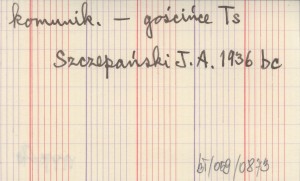 komunik. – gościńce Ts
Szczepański J. A. 1936 bc
bT/009/0879